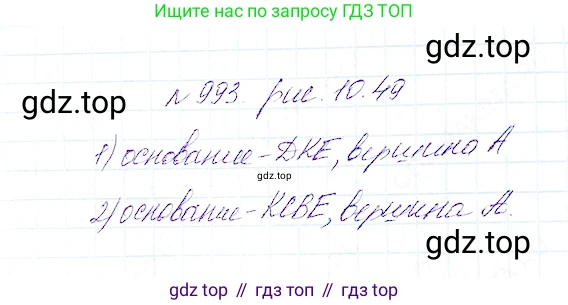 Ищите нас по запросу ГДЗ ТОП
gdz.top
gdz.top
№ 993. рис. 10.49
1) основание - ДКЕ, вершина А
gdz.top
2) основание - КСВЕ, вершина А.
gdz.top
gdz.top
gdz.top // гдз топ // gdz.top // гдз топ